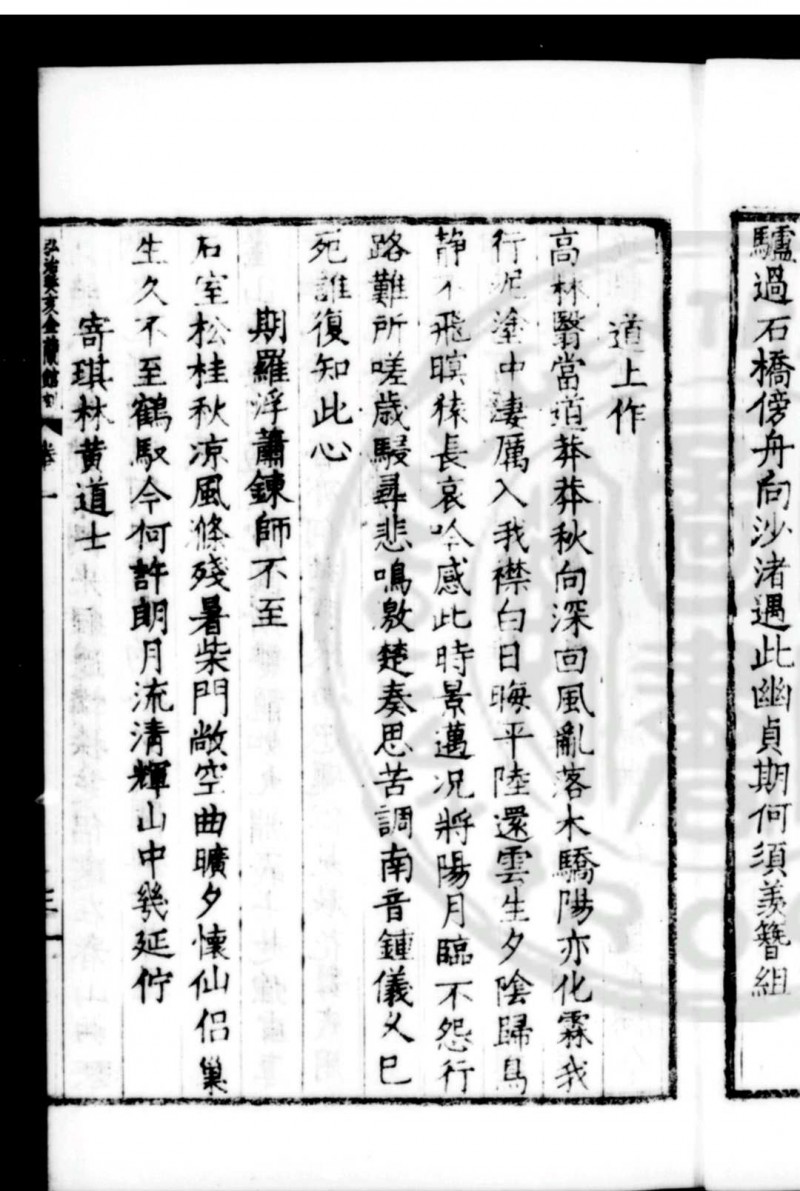 驢過石橋傍舟向沙渚遇此幽貞期何須羨簪組
道上作
高林翳當道莽莽秋向深回風亂落木驕陽亦化霖我
行泥塗中淒厲入我襟白日晦平陸還雲生夕陰歸鳥
静不飛暝猿長哀吟感此時景邁况將陽月臨不怨行
路難所嗟歲駸尋悲鳴激楚奏思苦調南音鍾儀乆巳
死誰復知此心
期羅浮蕭鍊師不至
石室松桂秋凉風滌殘暑柴門敞空曲曠夕懷仙侣巢
生久不至鶴馭今何許朗月流清輝山中幾延佇
寄琪林黄道士
弘治癸亥金蘭館刻
卷一